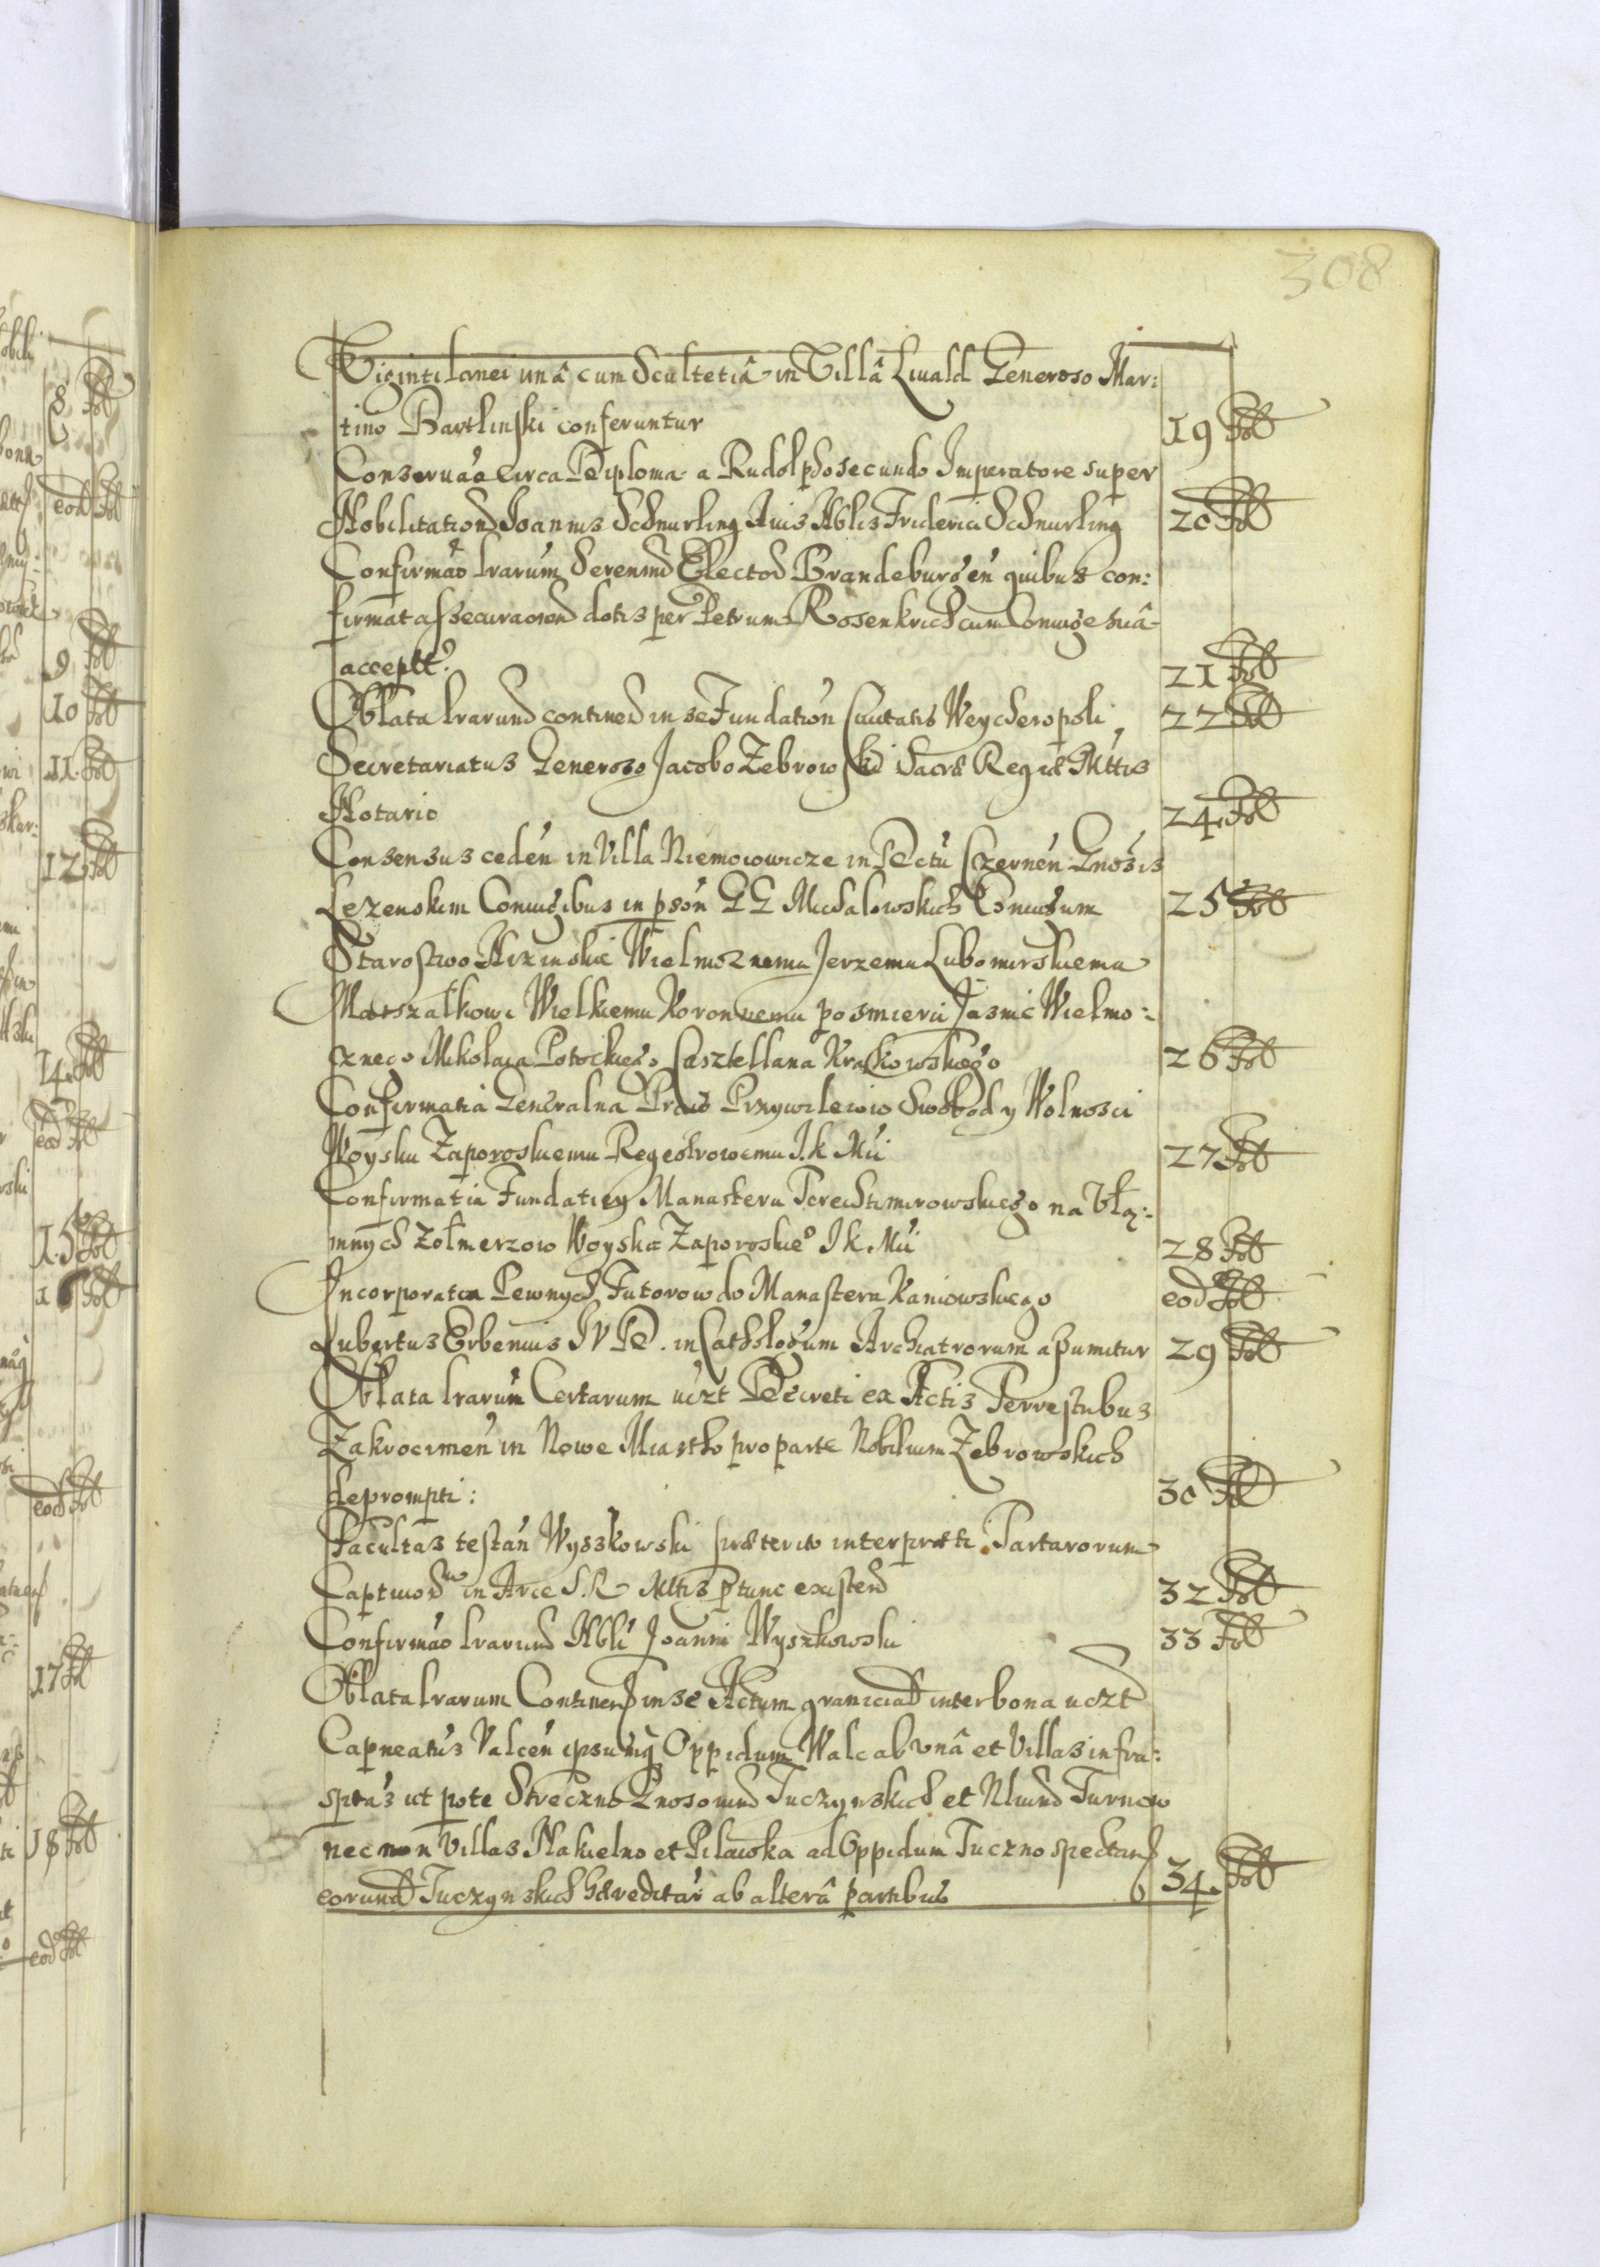 308
Viginti lanei unâ cum Scultetiâ in Villâ Liuald Generoso Mar:
tino Bartlinski conferuntur 19 Fol
Conseruáo circa Diploma a Rudolpho secundo Imperatore super
Nobilitationẽ Joannis Schnurling Auis Nblis Friderici Schnurling 20 Fol
Confirmáo lrarum Serenmi Elector Brandeburgeń quibus con:
firmat assecuraonem dotis per Petrum Rosenkrich cum Coniuge suâ
accept 21 Fol
Oblata lrarum contineñ in se Fundatioń Ciuitatis Weycheropoli 22 Fol
Secretariatus Generoso Jacobo Zebrowski Sacræ Regiæ Mttis
Notario 24 Fol
Consensus cedeń in Villa Niemoiowicze in Dctú Czerneń Gnosis
Lezenskim Coniugibus in psoń GG Michalowskich Coniugum 25 Fol
Starostwo Wielmoznemu Jerzemu Lubomirskiemu
Marszałkowi Wielkiemu Koronnemu po smierci Jasnie Wielmo:
cznego Mikolaia Potockiego Casztellana Krakowskiego 26 Fol
Confirmatia Generalna Praw Przywileiow Swobod y Wolnosci
Woysku Zaporoskiemu Regestrowemu J.K Mći 27 Fol
Confirmatia Fundatiey Manasteru Terechtimirowskiego na Vłą:
mnych Zołnierzow Woyska Zaporoskie° J K Mći 28 Fol
Incorporatia Pewnych Futorow do Manasteru Kaniowskiego eod Fol
Lubertus Erbenius J V D. in Cathologum Archiatrorum assumitur 29 Fol
Oblata lrarum Certarum uczt Decreti ex Actis Terrestribus
Zakrocimeń in Nowe Miastho pro parte Nobilium Zebrowskich
deprompti: 30 Fol
Facultas testań Wyszkowski præterito interpreti Tartarorum
Captiuor in Arce S.R Mttis p tunc existeñ 32 Fol
Confirmáo lrarum Nbli Joanni Wyszkowski 33 Fol
Oblata lrarum Contineñ in se Actum graniciaĺ inter bona uczt
Capneatus Valceń ipsumq Oppidum Walc ab vnâ et Villas infra:
sptas ut pote Streczno Gnosorum Tuczynskich et Turnow
nec non Villas Nakielno et Pilawka ad Oppidum Tuczno spectań
eorund Tuczynskich hæreditar ab alterâ partibus 34 Fol
8 Fol
eod Fol
9 Fol
10 Fol
11 Fol
12 Fol
14 Fol
eod Fol
15 Fol
16 Fol
eod Fol
17 Fol
18 Fol
eod Fol